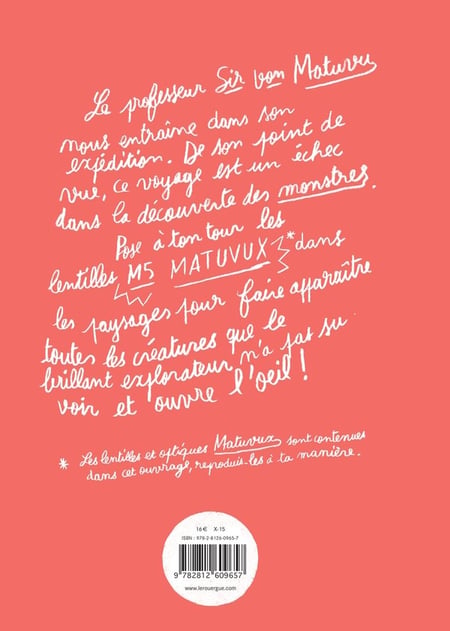 Le professeur Sir von Matuvu
nous entraîne dans son
expédition. De son point de
vue, ce voyage est un échec
dans la découverte des monstres.
Pose à ton tour les
lentilles M5 MATUVUX * dans
les paysages pour faire apparaître
toutes les créatures que le
brillant explorateur n'a pas su
voir et ouvre l'oeil !
* Les lentilles et optiques Matuvux sont contenues
dans cet ouvrage, reproduis-les à ta manière.
16 € X-15
ISBN : 978-2-8126-0965-7
9 782812 609657
www.lerouergue.com